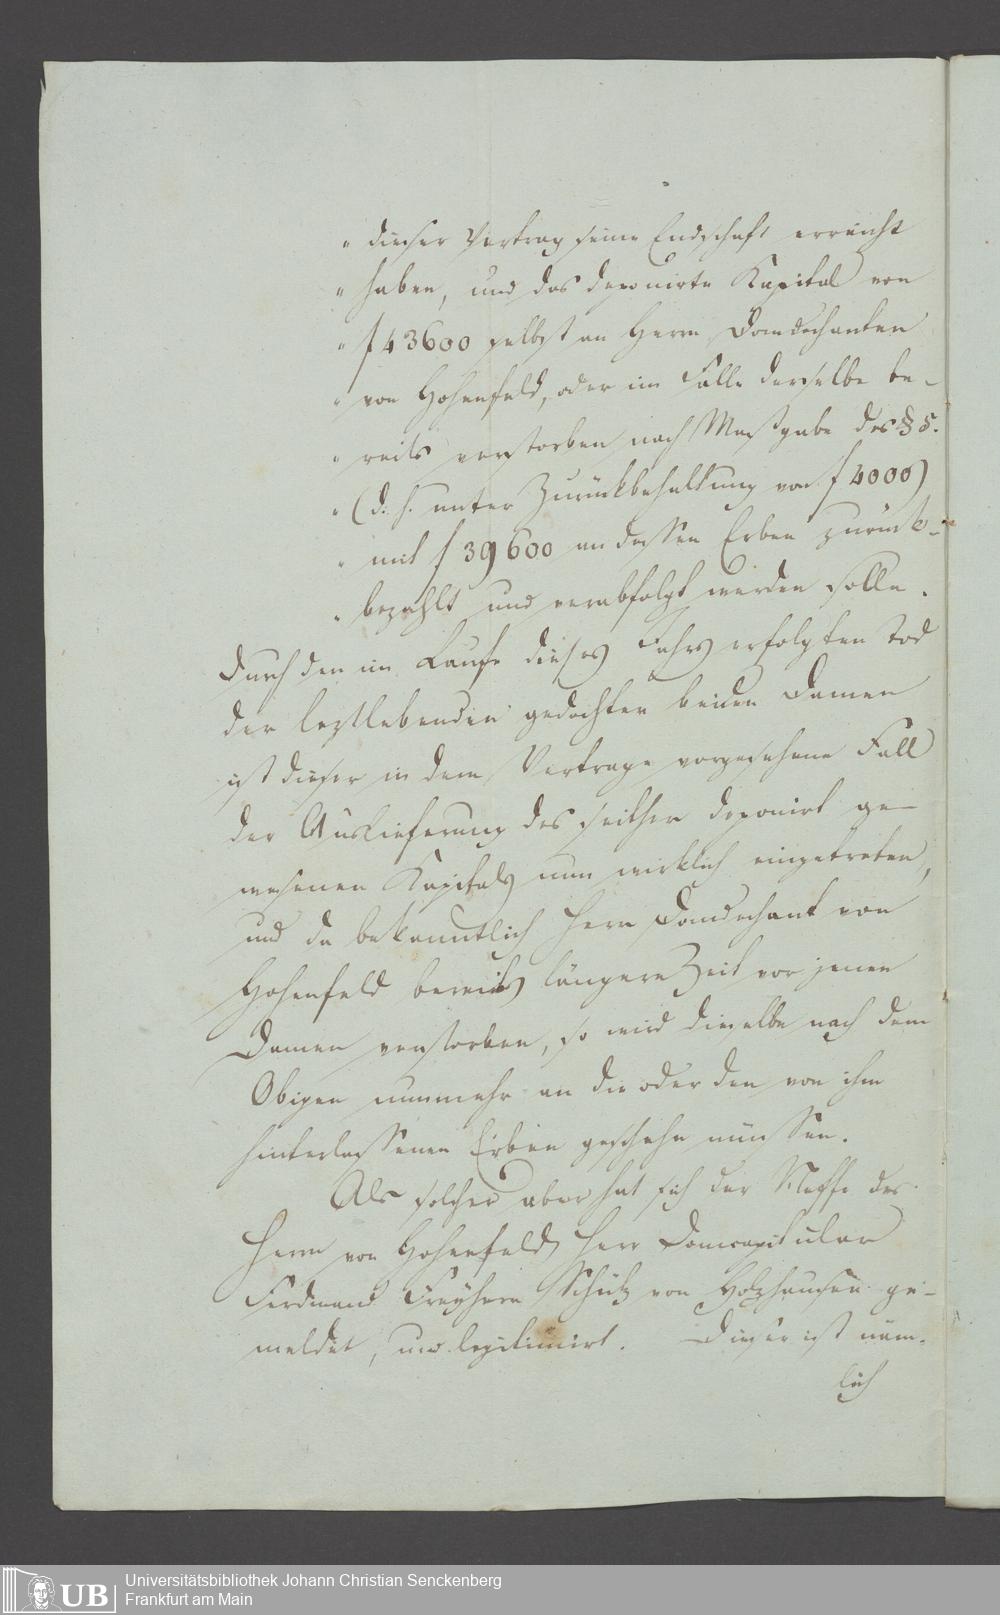 " dieser Vertrag seine Endschaft erreicht
" haben, und das deponirte Kapital von
" f 43600 selbst an Herrn Domdechanten
" von Hohenfeld, oder im Falle derselbe be-
" reits verstorben nach Maßgabe des § 5.
" (d. h. unter Zurückbehaltung von f 4000)
" mit f 39600 an dessen Erben zurück-
" bezahlt und verabfolgt werden solle.
Durch den im Laufe dieses Jahrs erfolgten Tod
der leztlebenden gedachter beiden Damen
ist dieser in dem Vertrage vorgesehene Fall
der Auslieferung des seither deponirt ge-
wesenen Kapitals nun wirklich eingetreten,
und da bekanntlich Herr Domdechant von
Hohenfeld bereits längere Zeit vor jenen
Damen verstorben, so wird dieselbe nach dem
Obigen nunmehr an die oder den von ihm
hinterlassenen Erben geschehn müssen.
Als solcher aber hat sich der Neffe des
Herrn von Hohenfeld, Herr Domcapitular
Ferdinand Freyherr Schütz von Holzhausen ge-
meldet, und legitimirt. Dieser ist näm-
lich
UB
Universitätsbibliothek Johann Christian Senckenberg
Frankfurt am Main